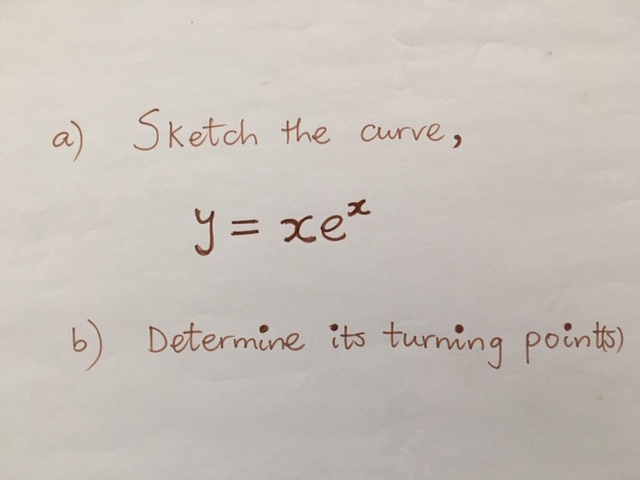 a) Sketch the curve,
y = xeˣ
b) Determine its turning point(s)